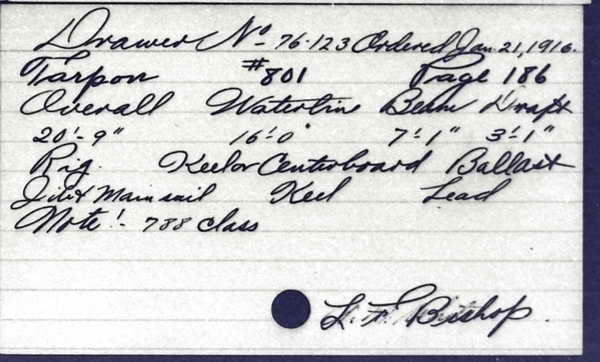 Drawer No 76-123 Ordered Jan. 21, 1916.
Tarpon #801 Page 186
Overall Waterline Beam Draft
20'-9" 16'-0" 7'-1" 3'-1"
Rig. Keel or Centerboard Ballast
Jib & Mainsail Keel Lead
Note!- 788 class
L. F. Bishop.